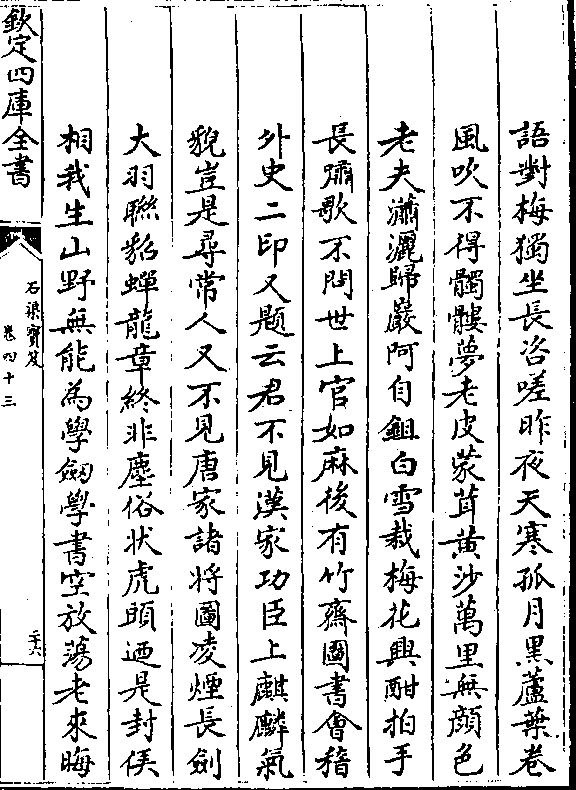 語對梅獨坐長咨嗟昨夜天寒孤月黑蘆葉卷
風吹不得髑髏夢老皮蒙茸黃沙萬里無顔色
老夫瀟灑歸巖阿自鉏白雪栽梅花興酣拍手
長嘯歌不問世上官如麻後有竹齋圖書會稽
外史二印又題云君不見漢家功臣上麒麟氣
貌豈是尋常人又不見唐家諸將圖凌煙長劍
大羽聯貂蟬龍章終非塵俗狀虎頭迺是封侯
相我生山野無能為學劍學書空放蕩老來晦
欽定四庫全書
石渠寳笈
卷四十三
二十六